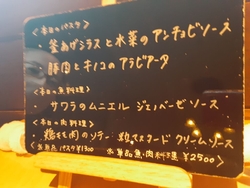 <本日のパスタ>
・釜あげシラスと水菜のアンチョビソース
・豚肉とキノコのアラビアータ
<本日の魚料理>
・サワラのムニエル ジェノベーゼソース
<本日の肉料理>
・鶏もも肉のソテー 粒マスタードクリームソース
パスタ¥1300 魚・肉料理 ¥2500